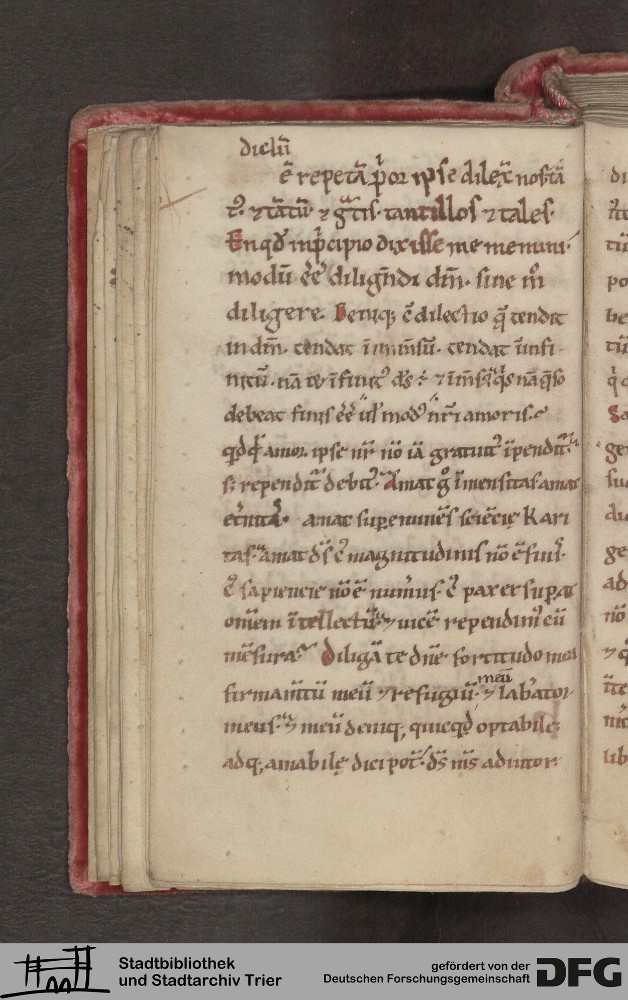 dictū
ē repetā p̄or ipse dilex̄ nos tā
t᷒. ⁊ tātū. ⁊ gͣtis. tantillos ⁊ tales.
En qd̄ in pͥncipio dixisse me memini.
modū eē dilign̄di dm̄. sine mͦ
diligere. Deniq; c̄ dilectio quę tendit
in dm̄. tendat ī inmēsū. tendat ī infi-
nitū. nā
debeat finis eē ul̓ mod᷒ nr̄i amoris.
qd̄ qͩ amor ipse nr̄ nō iā gratuit᷒ īpendit᷒
s; rependit᷒ debit᷒. Amat gͦ inmensitas amat
et̓nitas. amat supeminēs sciēcię kari
tas. amat ds̄ c᷒ magnitudinis nō ē finis.
c᷒ sapiencie nō ē num̓us. c᷒ pax exsupat
omnem ītellectū. ⁊ vicē rependim᷒ cū
mēsura. Diligā te dn̄e fortitudo mea
firmam̄tū meū ⁊ refugiū. meū ⁊ lib̓ator
meus. ⁊ meū deniq; quicqd̄ optabile
adq; amabilę dici pot̄. ds̄ ms̄ adiutor
Stadtbibliothek
und Stadtarchiv Trier
gefördert von der
Deutschen Forschungsgemeinschaft
DFG